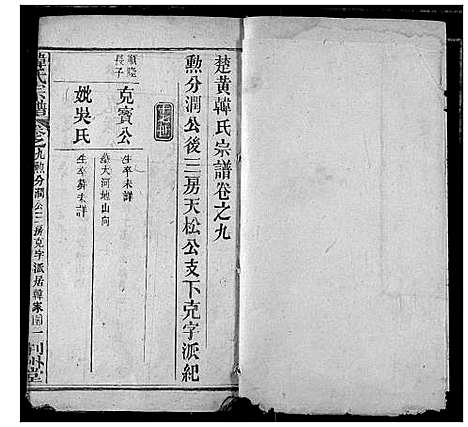 楚黄韓氏宗譜卷之九
勲分潤公後三房天松公支下克字派紀
順隆長子
克寶公
生卒未詳
葬大河地山向
妣吳氏
生卒葬未詳
韓氏宗譜
卷之九勲分潤公三房克字派居韓家園一